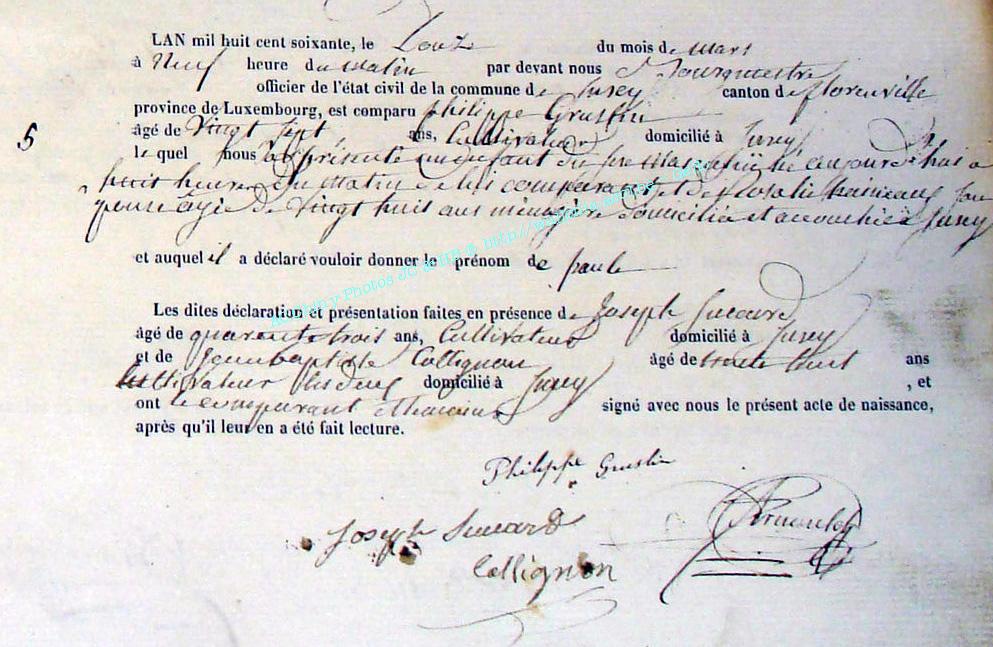 LAN mil huit cent soixante, le Douze du mois de Mars
à Neuf heure du matin par devant nous Bourguemestre
officier de l'état civil de la commune de Jusey canton de florenville
province de Luxembourg, est comparu philippe Gruslin
5 âgé de Vingt sept ans, Cultivateur domicilié à Jusey
le quel nous a présenté un enfant du sexe masculin né aujourd'hui a
huit heures du matin de lui comparant et de Rosalie sa
âgée de Vingt huit ans ménagère domiciliée et accouchée à Jusey
et auquel il a déclaré vouloir donner le prénom de paul
Les dites déclaration et présentation faites en présence de Joseph Sucard
âgé de quarante trois ans, Cultivateur domicilié à Jusey
et de Jean baptiste Collignon âgé de trente huit ans
Cultivateur les deux domicilié à Jusey , et
ont le comparant et témoins signé avec nous le présent acte de naissance,
après qu'il leur en a été fait lecture.
Philippe Gruslin
Joseph Sucard
Collignon